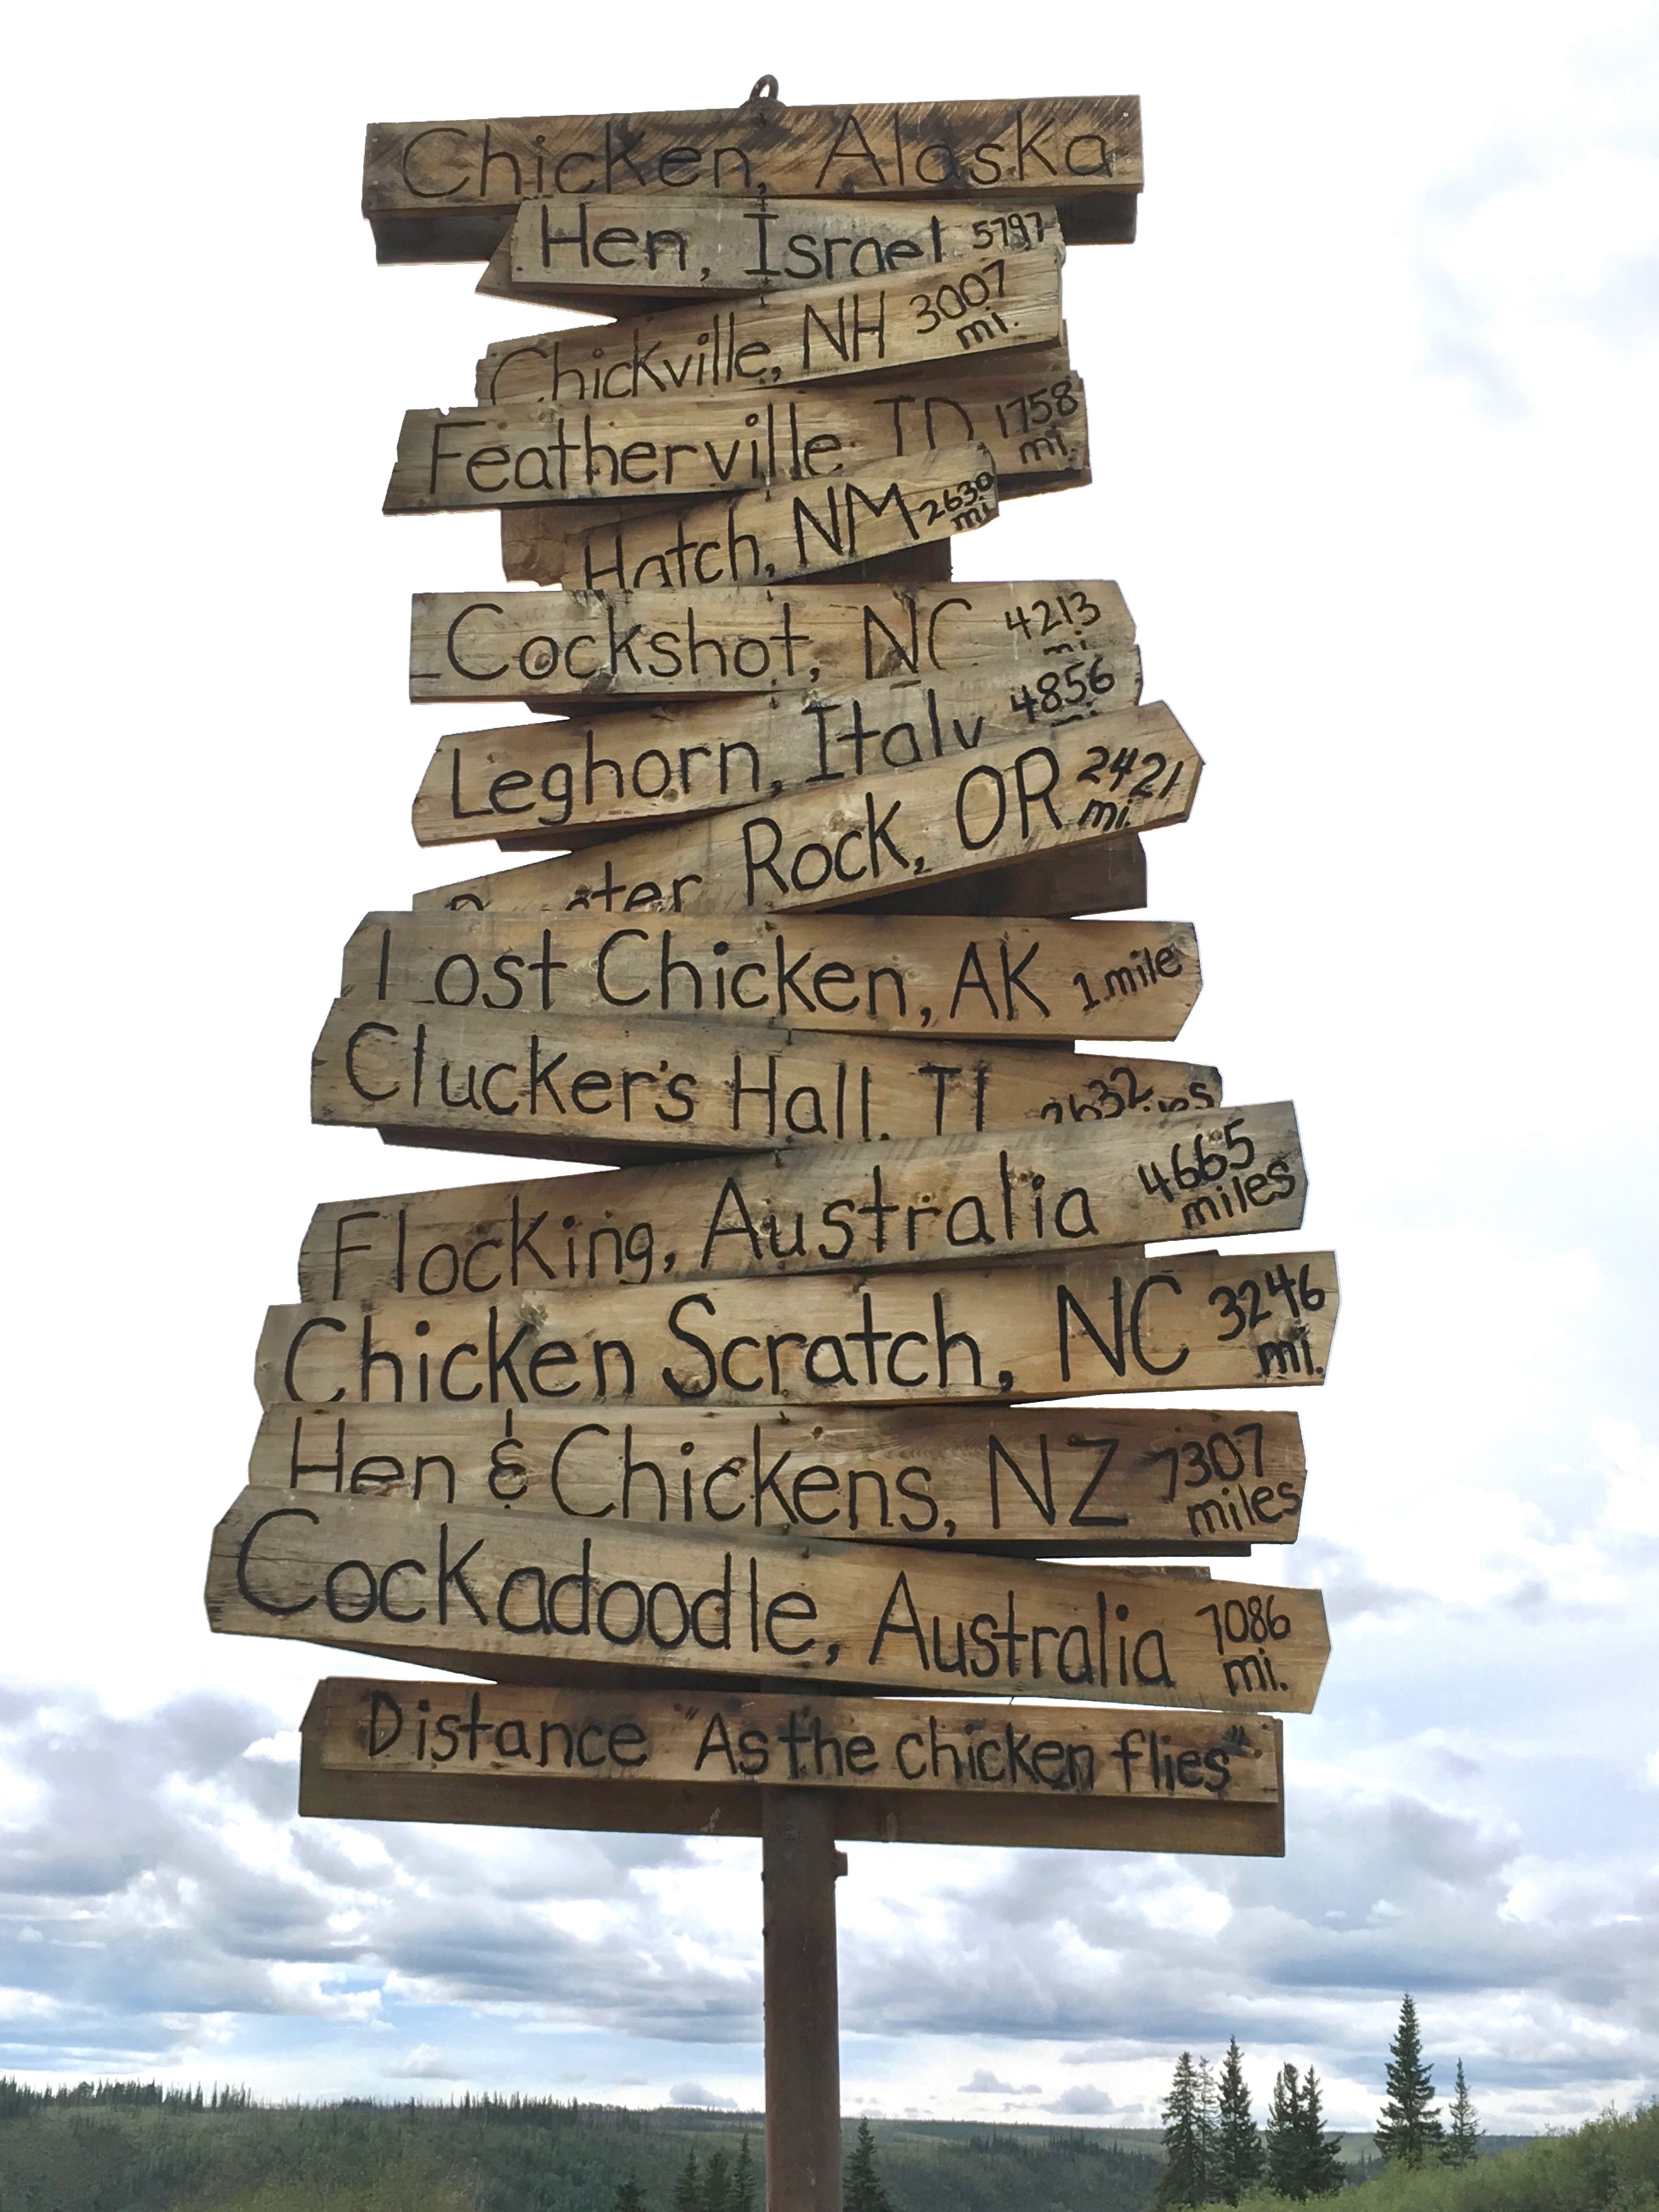 Chicken, Alaska
Hen, Israel 5797
Chickville, NH 3007 mi.
Featherville ID 1758 mi.
Hatch, NM 2630 mi.
Cockshot, NC 4213 mi.
Leghorn, Italy 4856 mi.
Rock, OR 2421 mi.
Lost Chicken, AK 1 mile
Clucker's Hall, 2632
Flocking, Australia 4665 miles
Chicken Scratch, NC 3246 mi.
Hen & Chickens, NZ 7307 miles
Cockadoodle, Australia 7086 mi.
Distance "As the chicken flies"